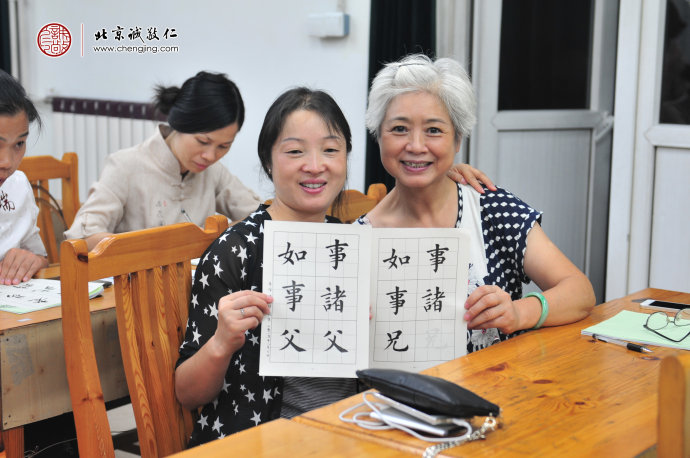 北京誠敬仁
www.chenjing.com
事諸父
如事父
事諸兄
如事兄